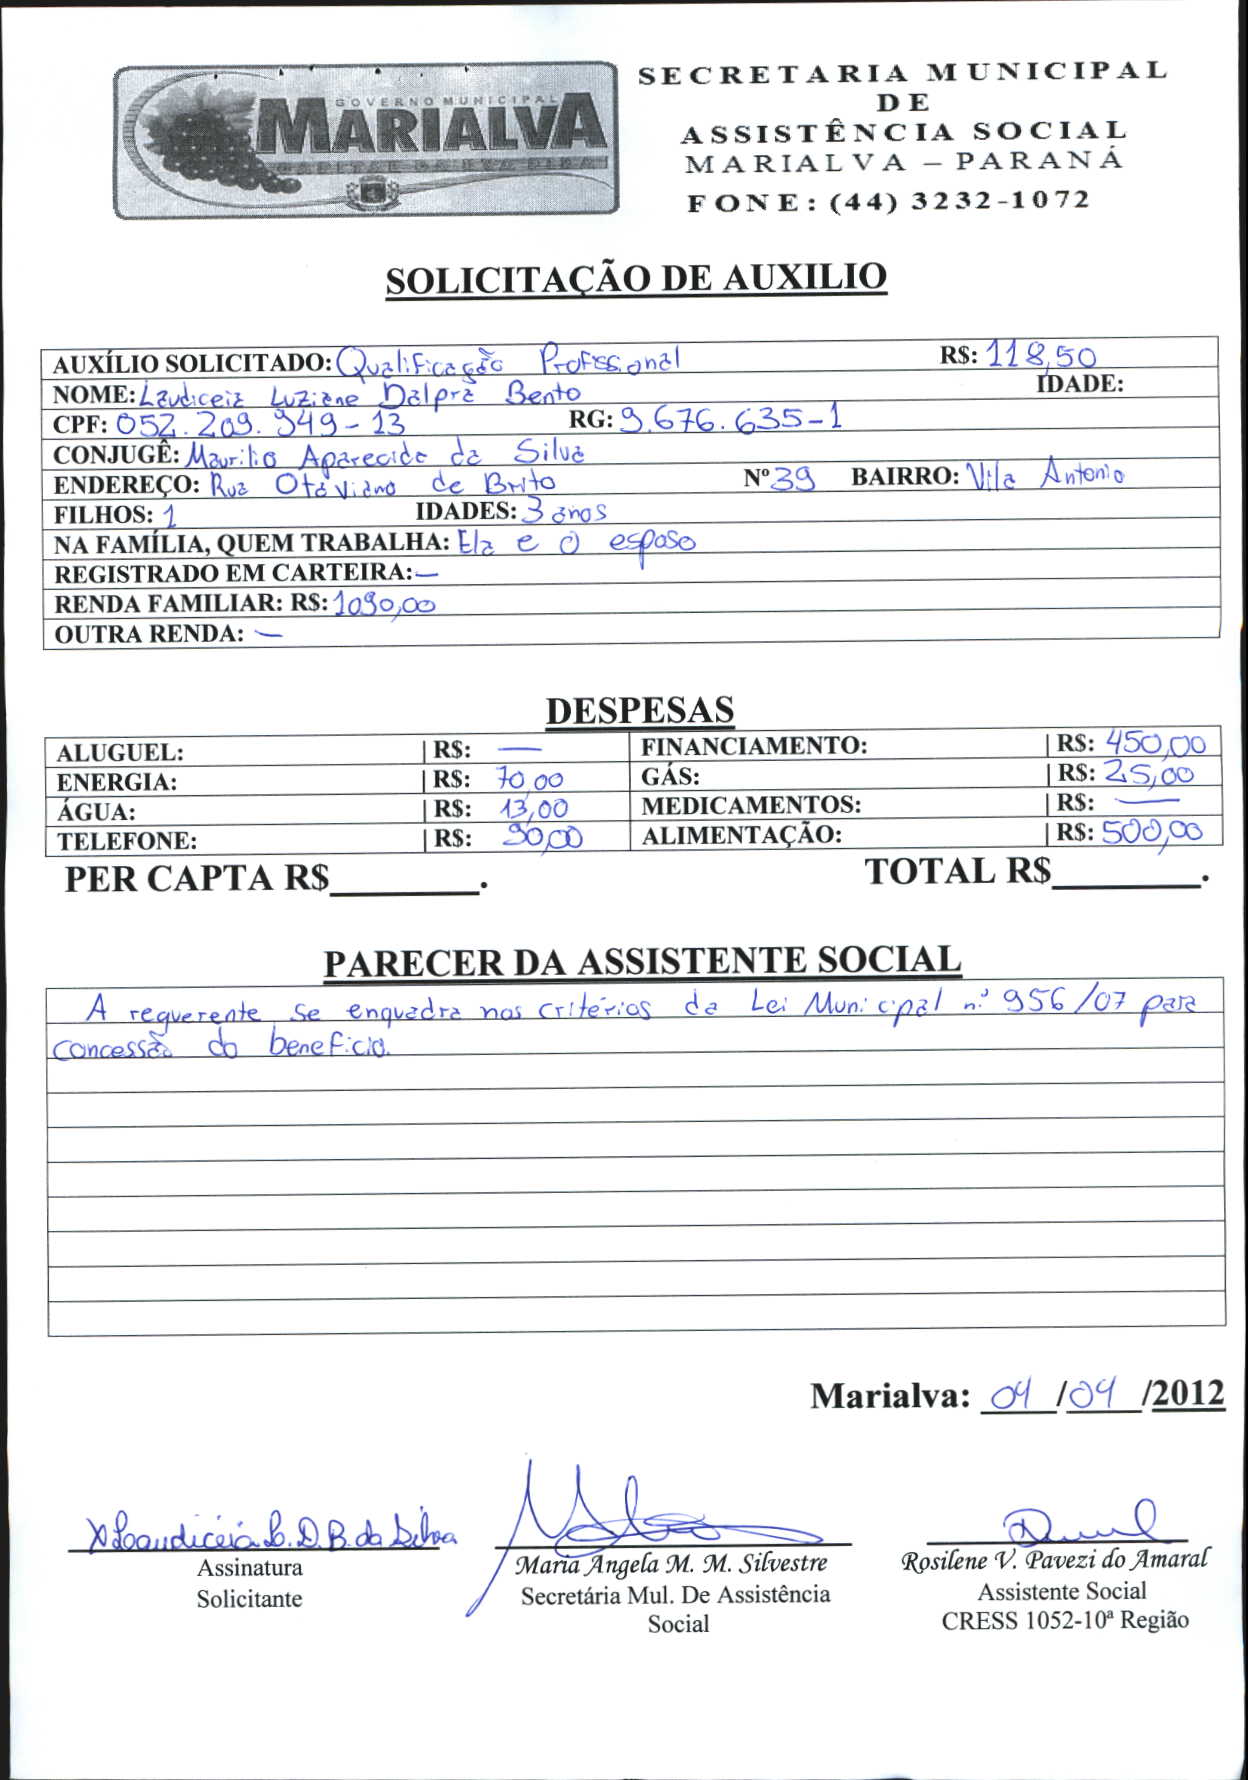 GOVERNO MUNICIPAL
MARIALVA
CAPITAL DA UVA FINA
SECRETARIA MUNICIPAL
DE
ASSISTÊNCIA SOCIAL
MARIALVA – PARANÁ
FONE: (44) 3232-1072
SOLICITAÇÃO DE AUXILIO
AUXÍLIO SOLICITADO: Qualificação Profissional R$: 118,50
NOME: Laudiceia Luziane Dalpra Bento IDADE:
CPF: 052.209.949-13 RG: 9.676.635-1
CONJUGÊ: Maurilio Aparecido da Silva
ENDEREÇO: Rua Otaviano de Brito Nº 39 BAIRRO: Vila Antonio
FILHOS: 1 IDADES: 3 anos
NA FAMÍLIA, QUEM TRABALHA: Ela e o esposo
REGISTRADO EM CARTEIRA: —
RENDA FAMILIAR: R$: 1090,00
OUTRA RENDA: —
DESPESAS
ALUGUEL: | R$: — FINANCIAMENTO: | R$: 450,00
ENERGIA: | R$: 70,00 GÁS: | R$: 25,00
ÁGUA: | R$: 13,00 MEDICAMENTOS: | R$: —
TELEFONE: | R$: 90,00 ALIMENTAÇÃO: | R$: 500,00
PER CAPTA R$________. TOTAL R$________.
PARECER DA ASSISTENTE SOCIAL
A requerente se enquadra nos critérios da Lei Municipal n.º 956/07 para
concessão do benefício.
Marialva: 04/04/2012
X Laudicéia L. D. B. da Silva
Assinatura
Solicitante
Maria Angela M. M. Silvestre
Secretária Mul. De Assistência
Social
Rosilene V. Pavezi do Amaral
Assistente Social
CRESS 1052-10ª Região